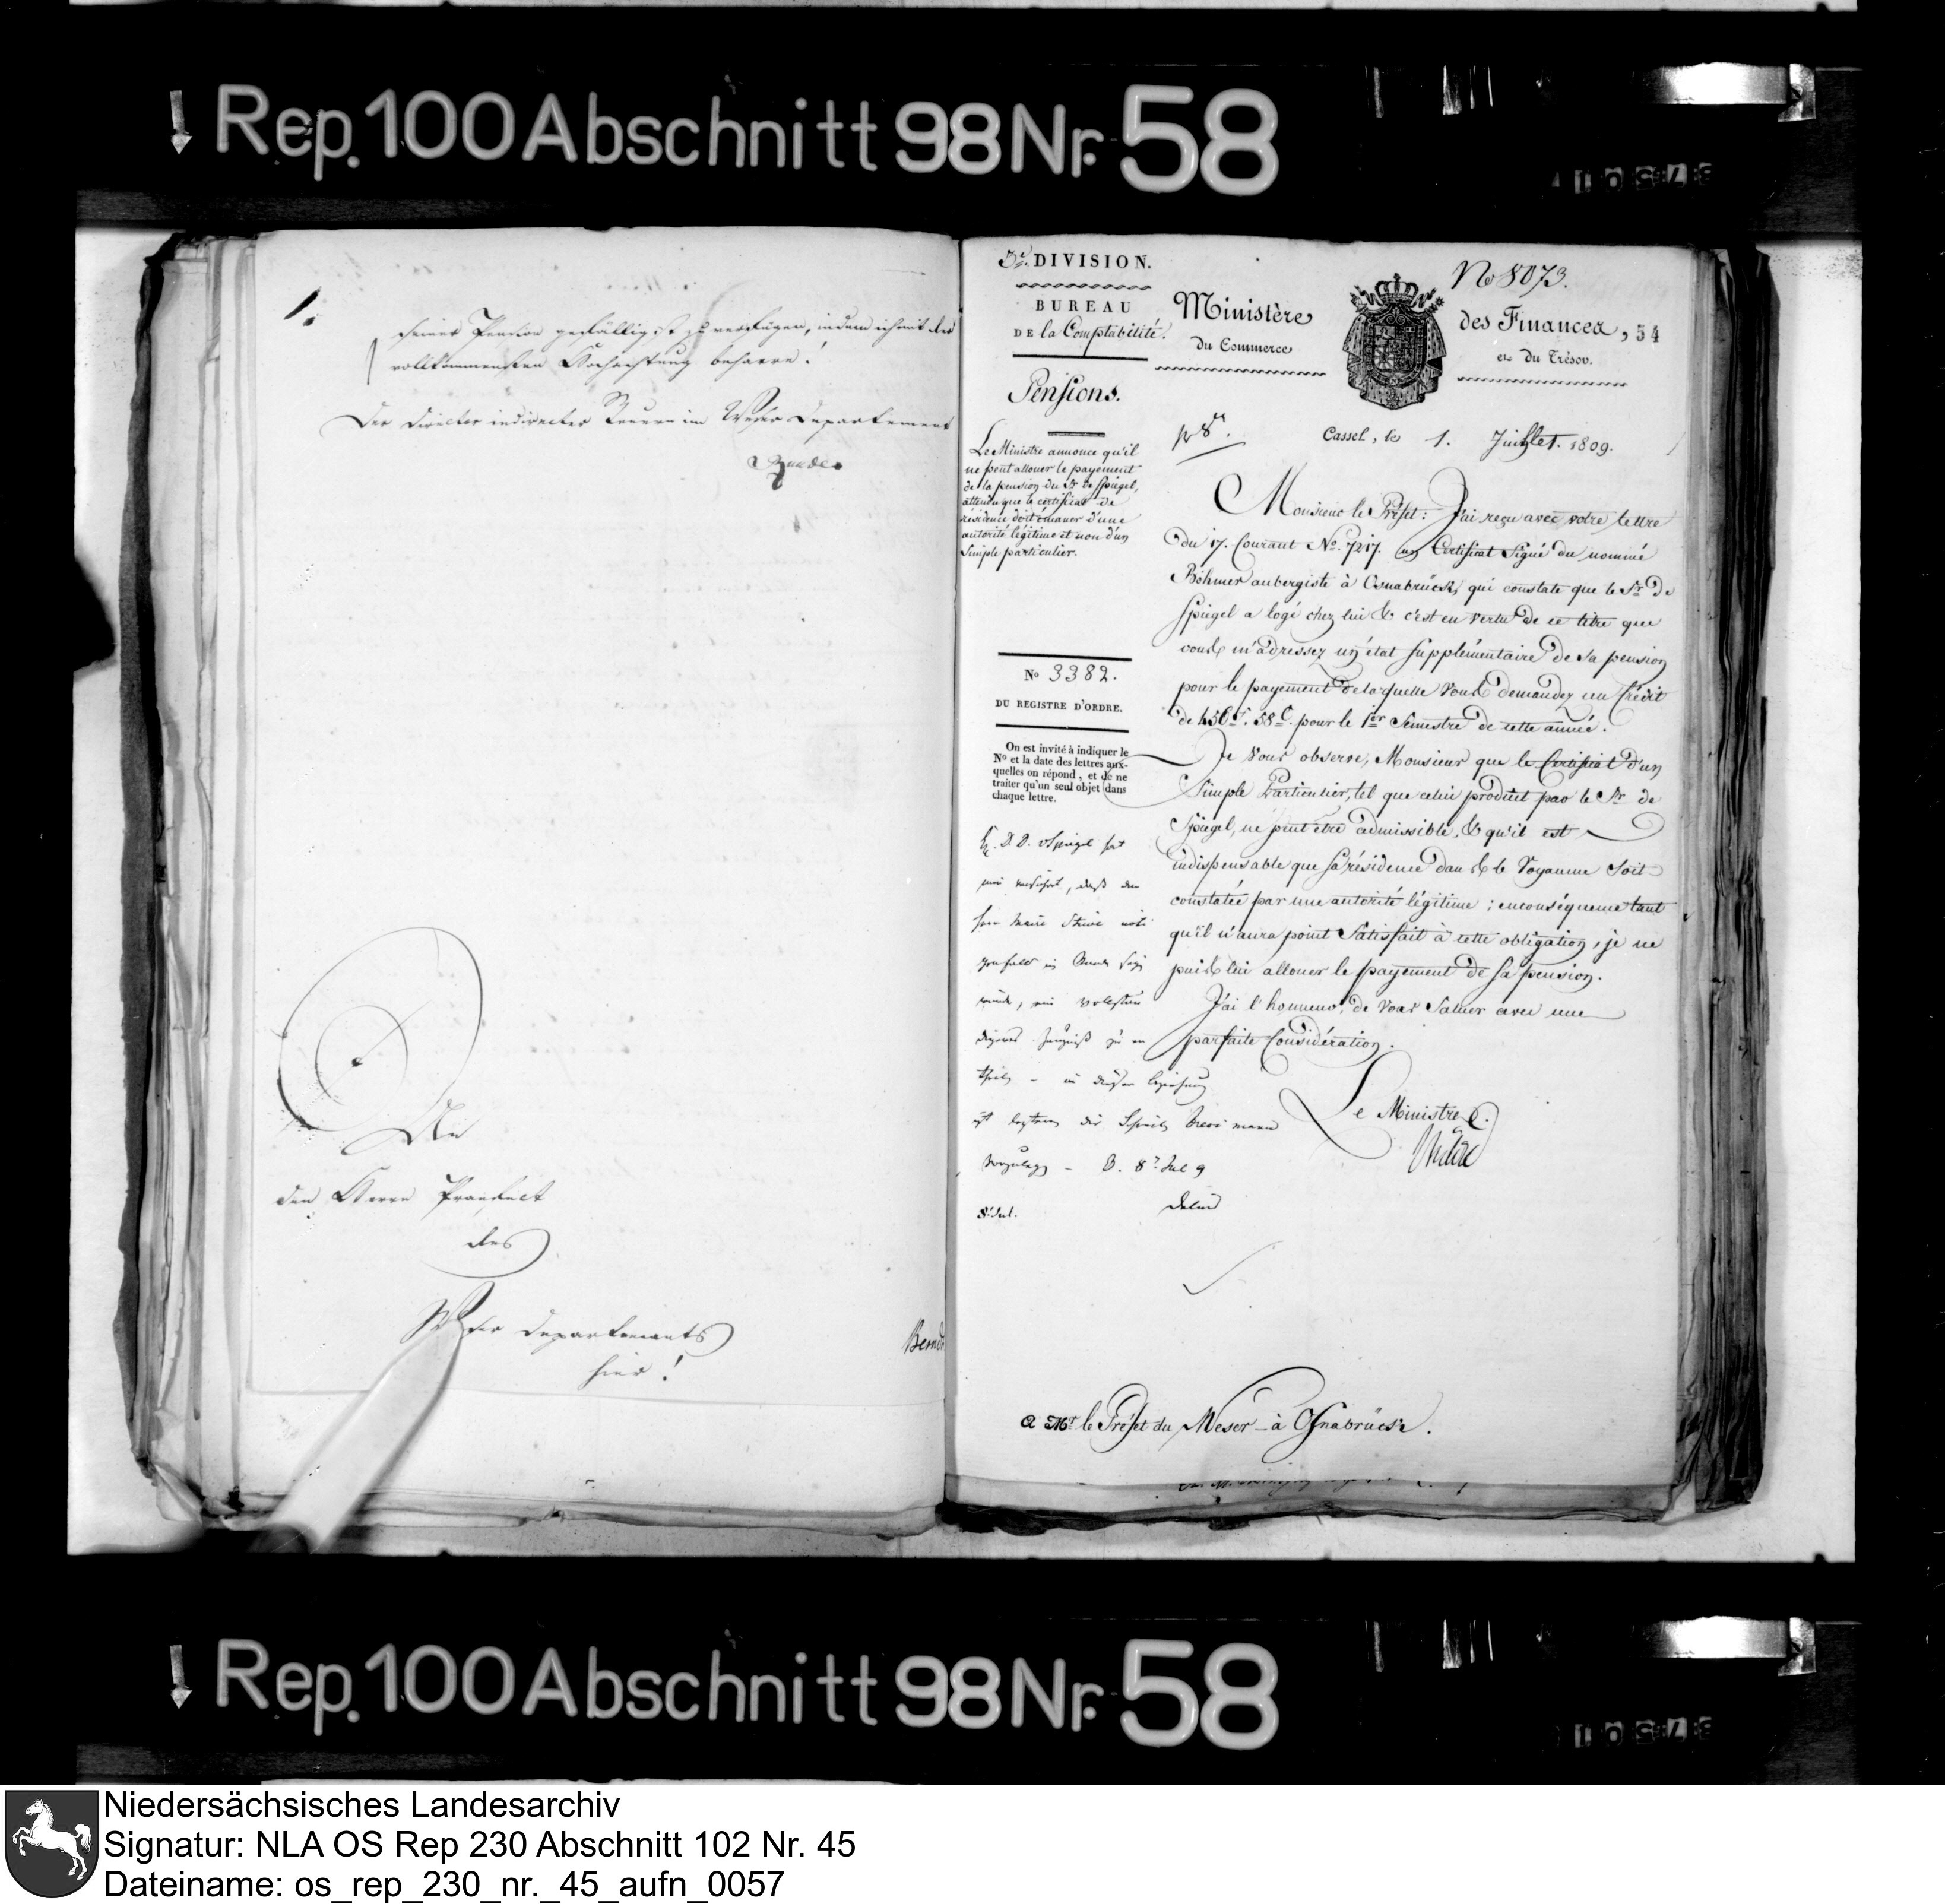 Rep. 100 Abschnitt 98 Nr. 58
seiner Pension gefälligst zu verfügen, indem ich mit der
vollkommensten Hochachtung beharre!
Der Director indirecter Steuern im Weser Departement
An
den Herrn Praefect
des
Weser Departements
hier!
3e. DIVISION.
BUREAU
DE la Comptabilité.
Pensions.
Le Ministre annonce qu'il
ne peut allouer le payement
de la pension du Sr de Spiegel,
attendu que le certificat de
résidence doit émaner d'une
autorité légitime et non d'un
simple particulier.
No 3382.
DU REGISTRE D'ORDRE.
On est invité à indiquer le
No et la date des lettres aux-
quelles on répond, et de ne
traiter qu'un seul objet dans
chaque lettre.
D. v Spiegel hat
daß
Herr Maire Stüve
ein vollstän
digeres Zeugniß zu er
theilen – in dieser Beziehung
ist
– 8. Jul 9
8. Jul.
No 8073.
Ministère des Finances, 54
du Commerce et du Trésor.
Cassel, le 1. Juillet. 1809.
Monsieur le Préfet: J'ai reçu avec votre lettre
du 17. Courant No. 7217. un Certificat Signé du nommé
Böhmer aubergiste à Osnabrück, qui constate que le Sr. de
Spiegel a logé chez lui & c'est en vertu de ce titre que
vous m'adressez un état Supplémentaire de sa pension
pour le payement de laquelle Vous demandez un Crédit
de 456 f. 58 C. pour le 1er Semestre de cette année.
Je Vous observe, Monsieur que le Certificat d'un
Simple Particulier, tel que celui produit par le Sr. de
Spiegel, ne peut être admissible, & qu'il est
indispensable que sa résidence dans le Royaume Soit
constatée par une autorité légitime; en conséquence tant
qu'il n'aura point Satisfait à cette obligation, je ne
puis lui allouer le payement de sa pension.
J'ai l'honneur de Vous Saluer avec une
parfaite Considération.
Le Ministre
A Mr. le Préfet du Weser – à Osnabrück.
Rep. 100 Abschnitt 98 Nr. 58
Niedersächsisches Landesarchiv
Signatur: NLA OS Rep 230 Abschnitt 102 Nr. 45
Dateiname: os_rep_230_nr._45_aufn_0057